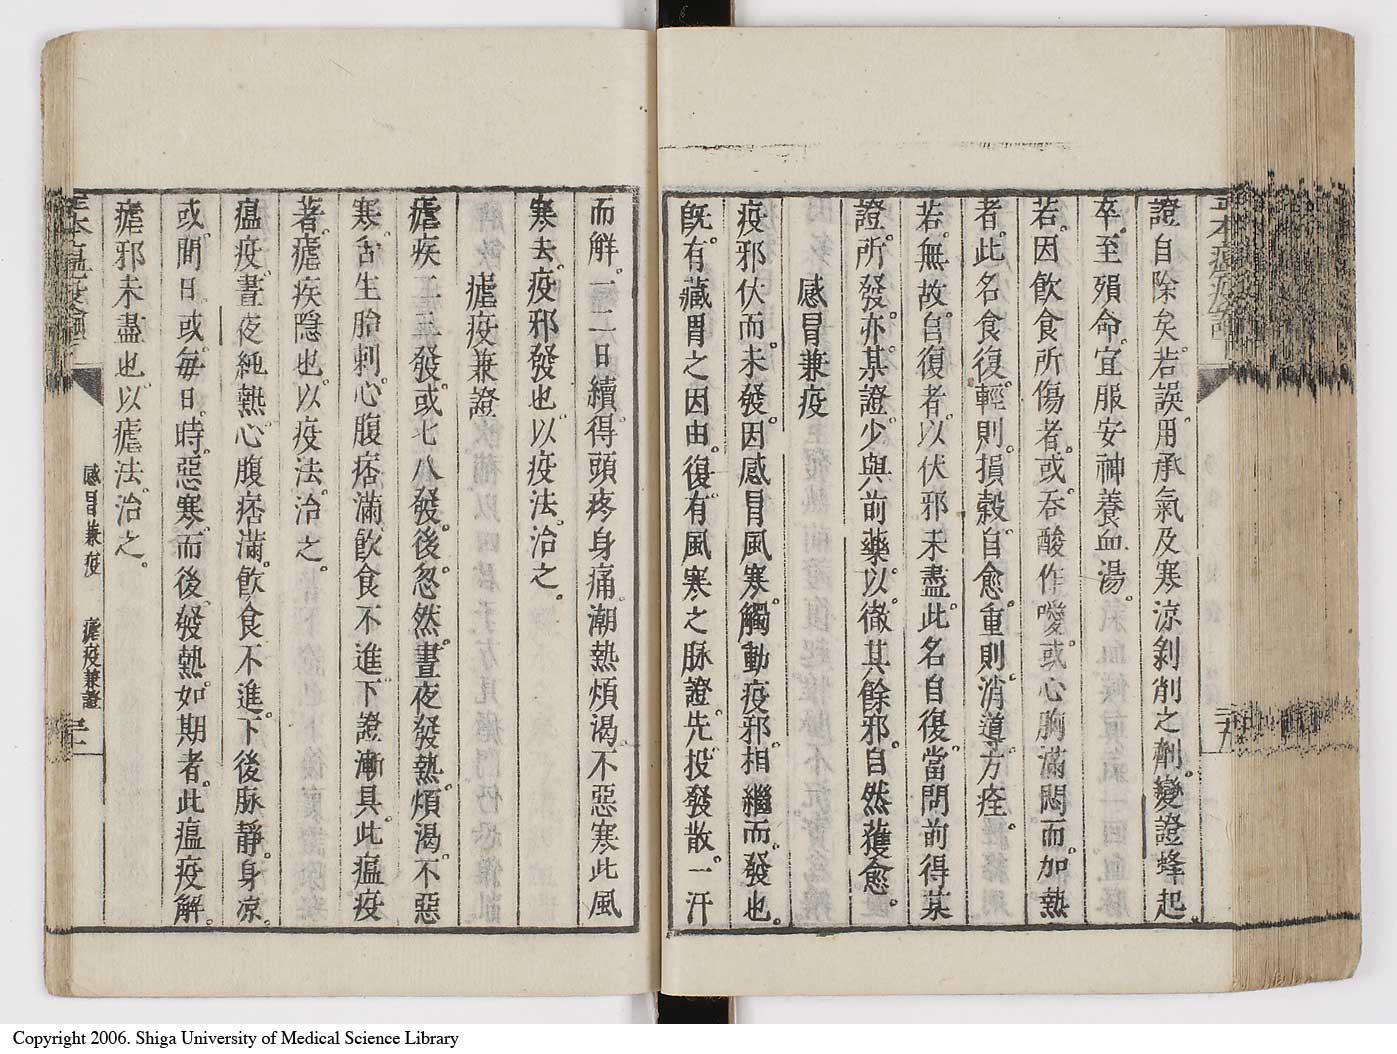 證自除矣若誤用承氣及寒涼剝削之劑變證蜂起
卒至殞命宜服安神養血湯
若因飲食所傷者或吞酸作噯或心胸滿悶而加熱
者此名食復輕則損穀自愈重則消導方痊
若無故自復者以伏邪未盡此名自復當問前得某
證所發亦某證少與前藥以徹其餘邪自然獲愈
感冒兼疫
疫邪伏而未發因感冒風寒觸動疫邪相繼而發也
旣有感冒之因由復有風寒之脉證先投發散一汗
而解一二日續得頭疼身痛潮熱煩渴不惡寒此風
寒去疫邪發也以疫法治之
瘧疫兼證
瘧疾二三發或七八發後忽然晝夜發熱煩渴不惡
寒舌生胎刺心腹痞滿飲食不進下證漸具此瘟疫
著瘧疾隱也以疫法治之
瘟疫晝夜純熱心腹痞滿飲食不進下後脉靜身凉
或間日或每日時惡寒而後發熱如期者此瘟疫解
瘧邪未盡也以瘧法治之
感冒兼疫 瘧疫兼證
Copyright 2006. Shiga University of Medical Science Library